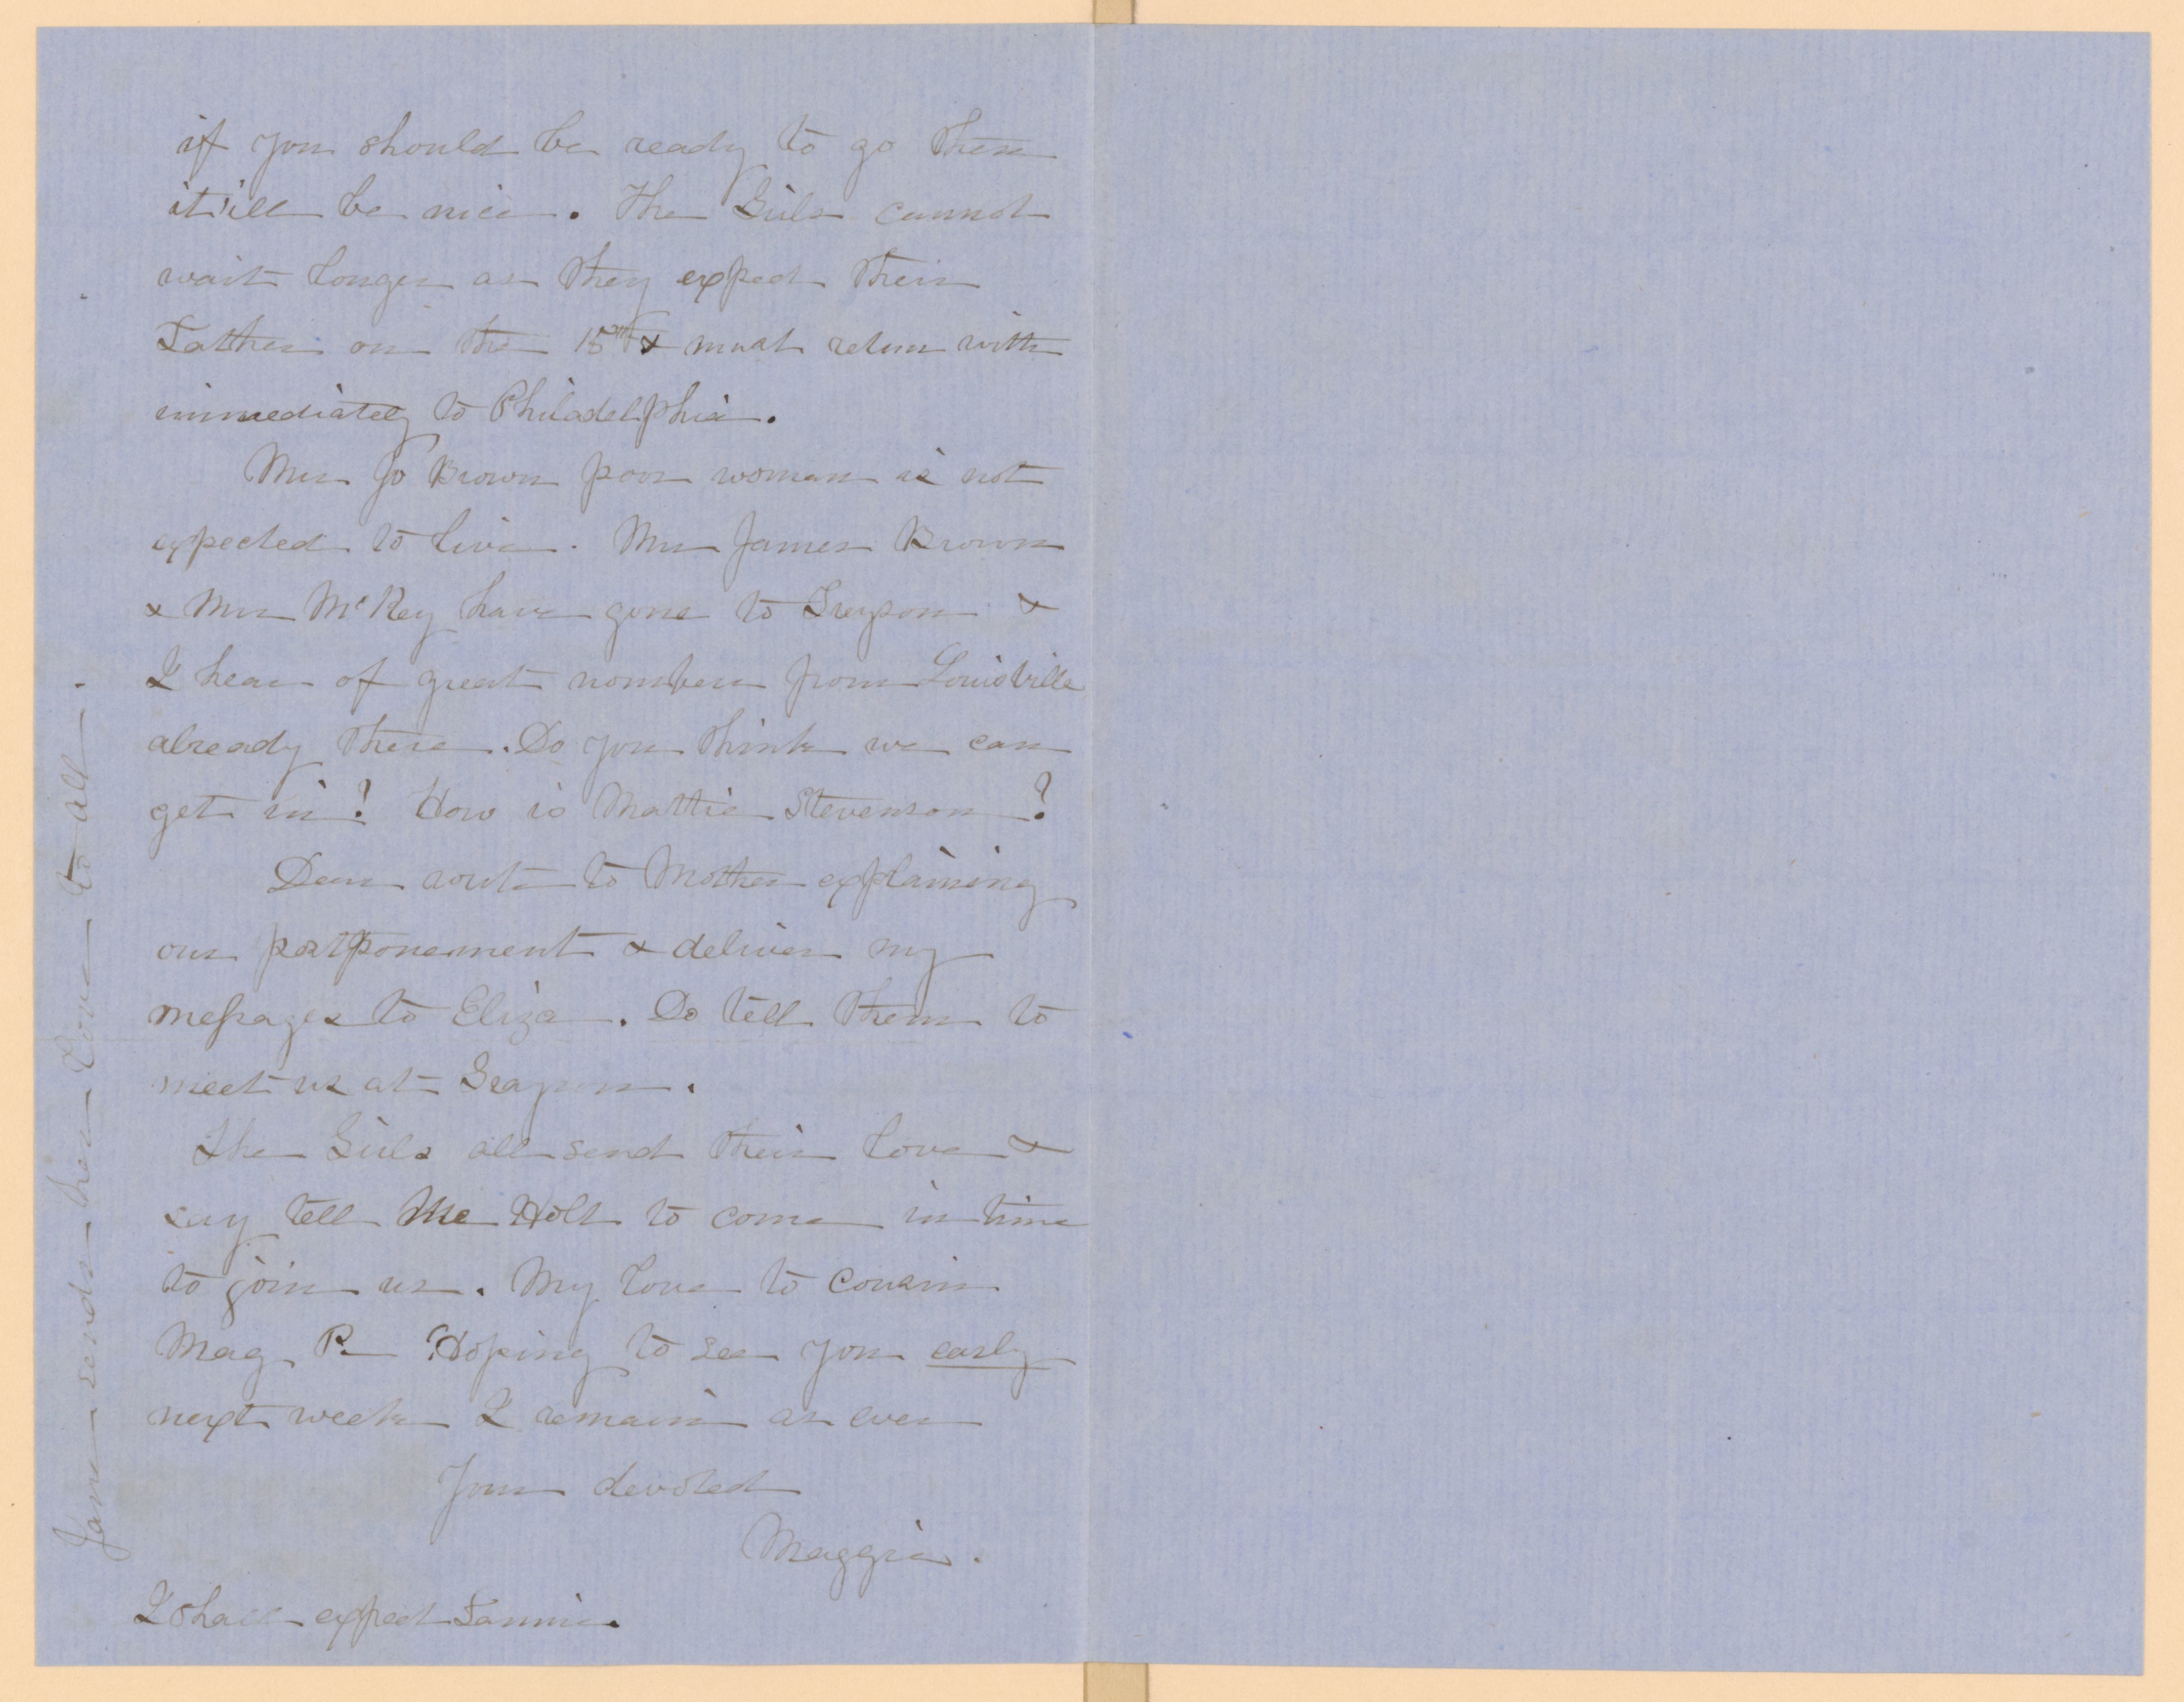 if you should be ready to go then
it'ill be nice. The Girls cannot
wait longer as they expect their
Father on the 15th & must return with
immediately to Philadelphia.
Mrs Jo Brown poor woman is not
expected to live. Mrs James Brown
& Mrs McKey have gone to Grayson &
I hear of great nombers from Louisville
already there. Do you think we can
get in? How is Mattie Stevenson?
Dear write to Mother explaining
our postponement & deliver my
messages to Eliza. Do tell them to
meet us at Grayson.
The Girls all send their love &
say tell Mr Holt to come in time
to join us. My love to Cousin
Mag P. Hoping to see you early
next week I remain as ever
Your devoted
Maggie.
I shall expect Fannie.
Jane sends her love to all.